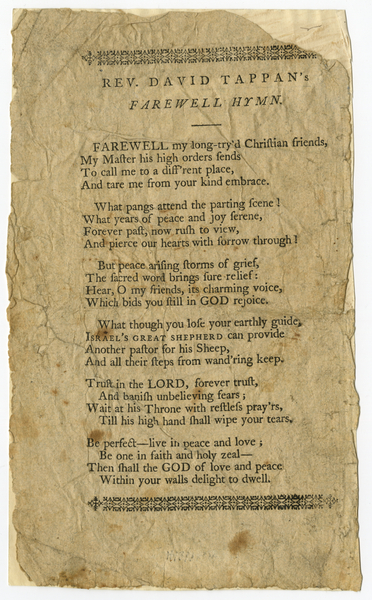 REV. DAVID TAPPAN's
FAREWELL HYMN.
FAREWELL my long-try'd Chriſtian friends,
My Maſter his high orders ſends
To call me to a diff'rent place,
And tare me from your kind embrace.
What pangs attend the parting ſcene!
What years of peace and joy ſerene,
Forever paſt, now ruſh to view,
And pierce our hearts with ſorrow through!
But peace ariſing ſtorms of grief,
The ſacred word brings ſure relief:
Hear, O my friends, its charming voice,
Which bids you ſtill in GOD rejoice.
What though you loſe your earthly guide,
ISRAEL'S GREAT SHEPHERD can provide
Another paſtor for his Sheep,
And all their ſteps from wand'ring keep.
Truſt in the LORD, forever truſt,
And baniſh unbelieving fears;
Wait at his Throne with reſtleſs pray'rs,
Till his high hand ſhall wipe your tears.
Be perfect—live in peace and love;
Be one in faith and holy zeal—
Then ſhall the GOD of love and peace
Within your walls delight to dwell.